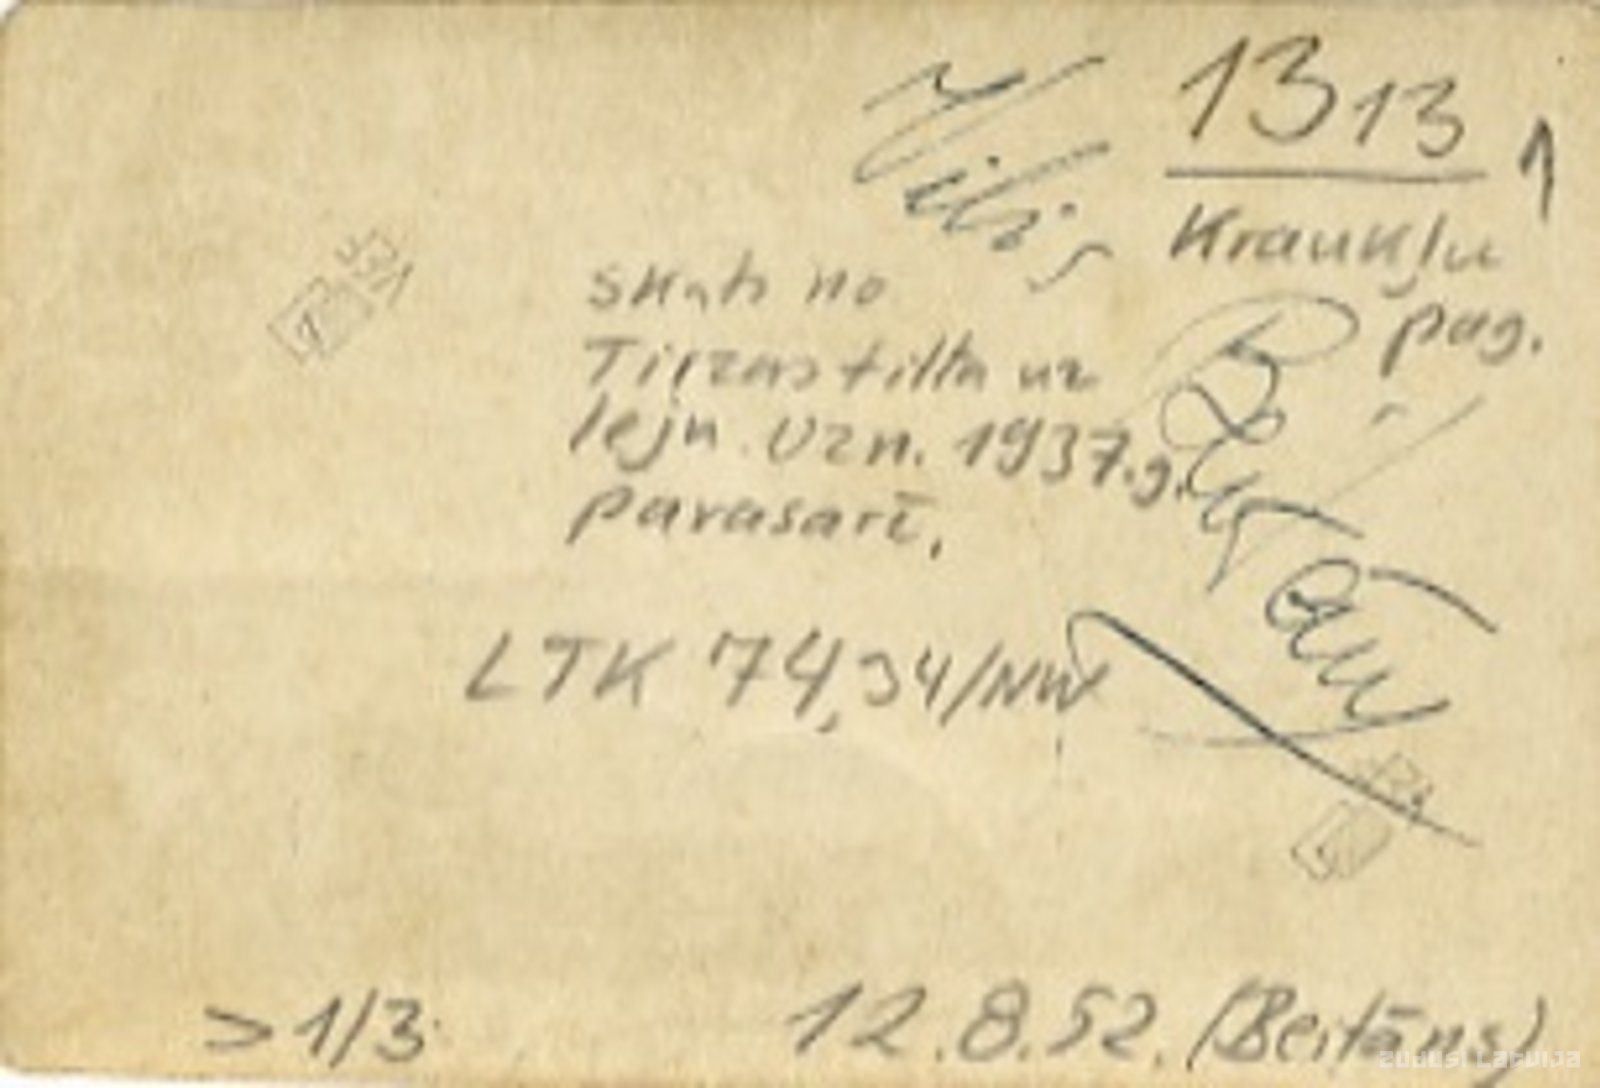 1313
Kraukļu
pag.
Vilis
skats no
Tirzas tilta uz
leju. Uzn. 1937.g.
pavasarī.
LTK 74,34/NW
>1/3
12.8.52. (Beitāns)
ZUDUSI LATVIJA